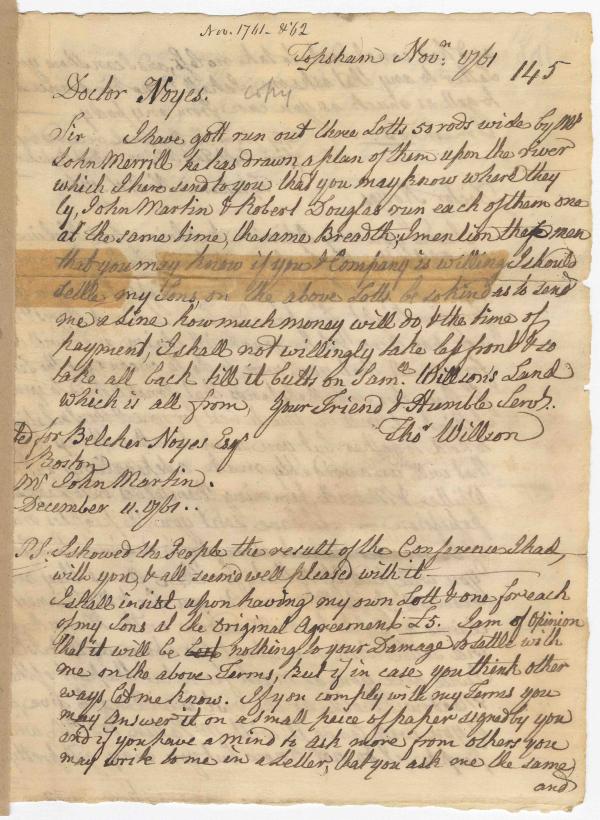 Nov. 1761 - & 62
Topsham Novr. 1761
145
Doctor Noyes.
copy
Sir I have gott run out three Lotts 50 rods wide by Mr
John Merrill he has drawn a plan of them upon the river
which I here send to you that you may know where they
ly, John Martin & Robert Douglas run each of them one
at the same time, the same Breadth, I mention these men
that you may know if you & Company is willing I should
settle my Sons, on the above Lotts be so kind as to send
me a Line how much money will do, & the time of
payment, I shall not willingly take less front & so
take all back till it butts on Saml. Willson's Land
Which is all from, Your Friend & Humble Servt.
Thos Willson
ted for Belcher Noyes Esqr
Boston
Mr John Martin.
December 11. 1761..
P.S. I showed the People the result of the Conference I had,
with you, & all seem'd well pleased with it
I shall insist upon having my own Lott & one for each
of my Sons at the Original Agreement £5. I am of Opinion
that it will be nothing to your Damage to settle with
me on the above Terms, but if in case you think other
ways, let me know. If you comply with my Terms you
may answer it on a small peice of paper signed by you
and if you have a mind to ask more from others you
may write to me in a Letter, that you ask me the same,
and